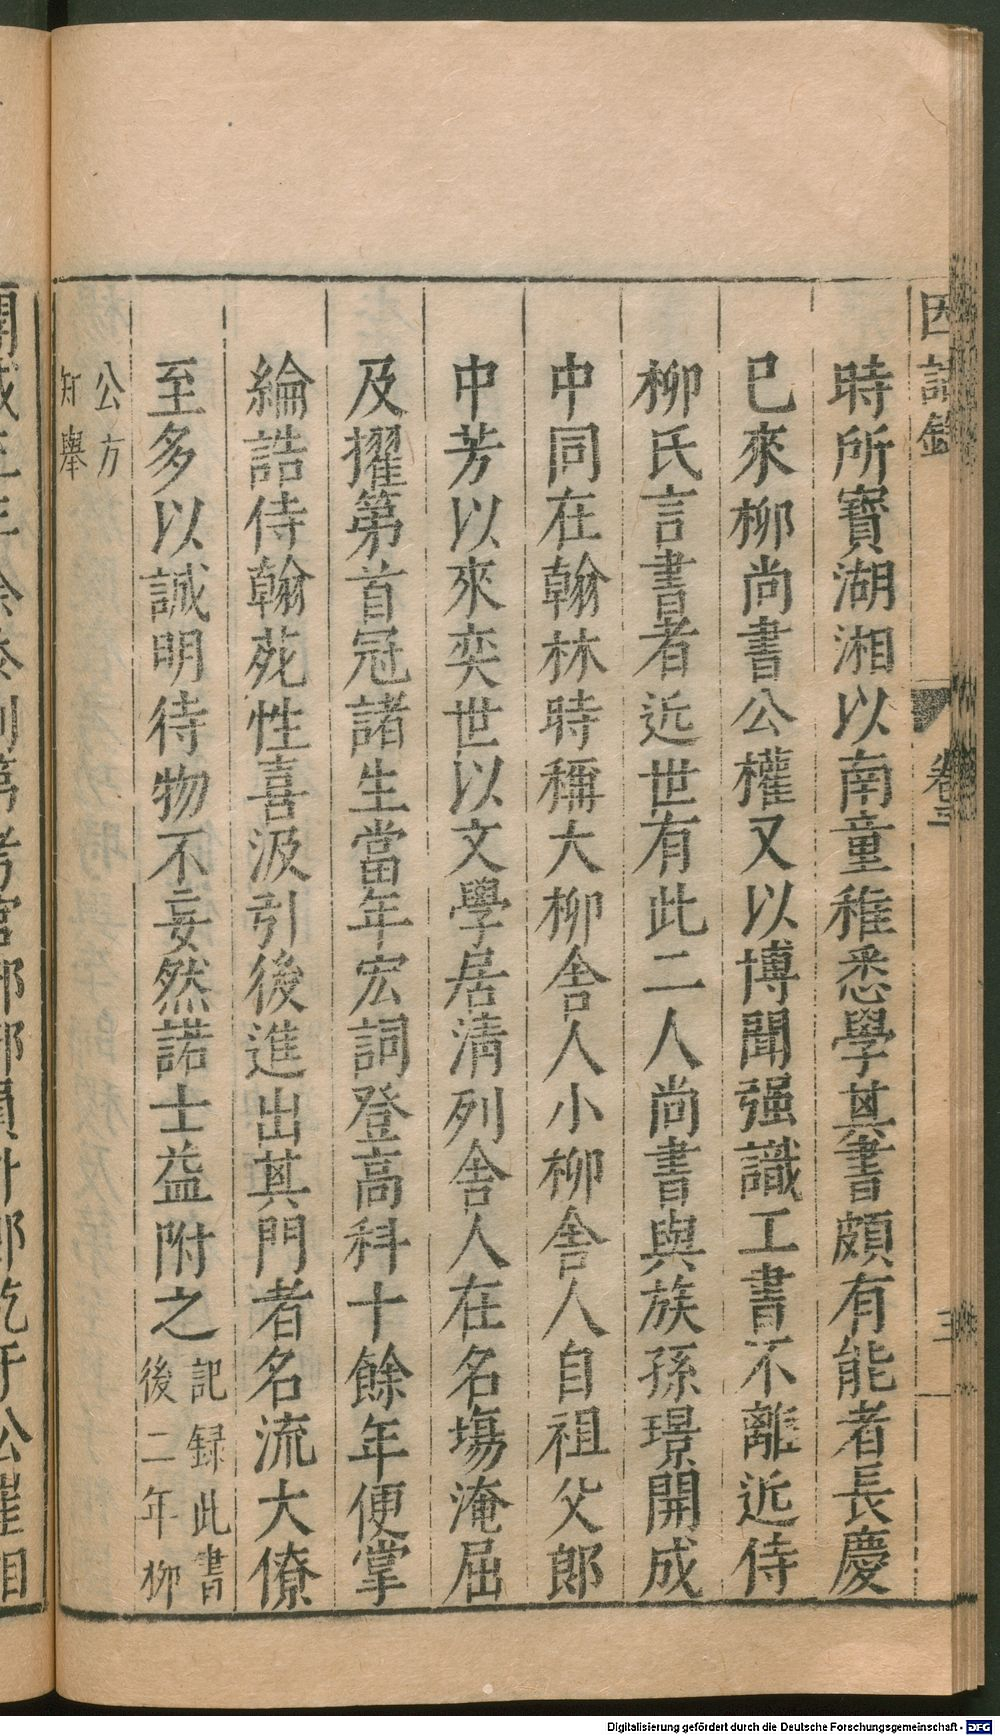 因話錄 卷三 三
時所寶湖湘以南童稚悉學其書頗有能者長慶
已來柳尚書公權又以博聞强識工書不離近侍
柳氏言書者近世有此二人尚書與族孫璟開成
中同在翰林時稱大柳舍人小柳舍人自祖父郎
中芳以來奕世以文學居清列舍人在名塲淹屈
及擢第首冠諸生當年宏詞登高科十餘年便掌
綸誥侍翰苑性喜汲引後進出其門者名流大僚
至多以誠明待物不妄然諾士益附之 記録此書
後二年柳
公方
知舉
Digitalisierung gefördert durch die Deutsche Forschungsgemeinschaft - DFG